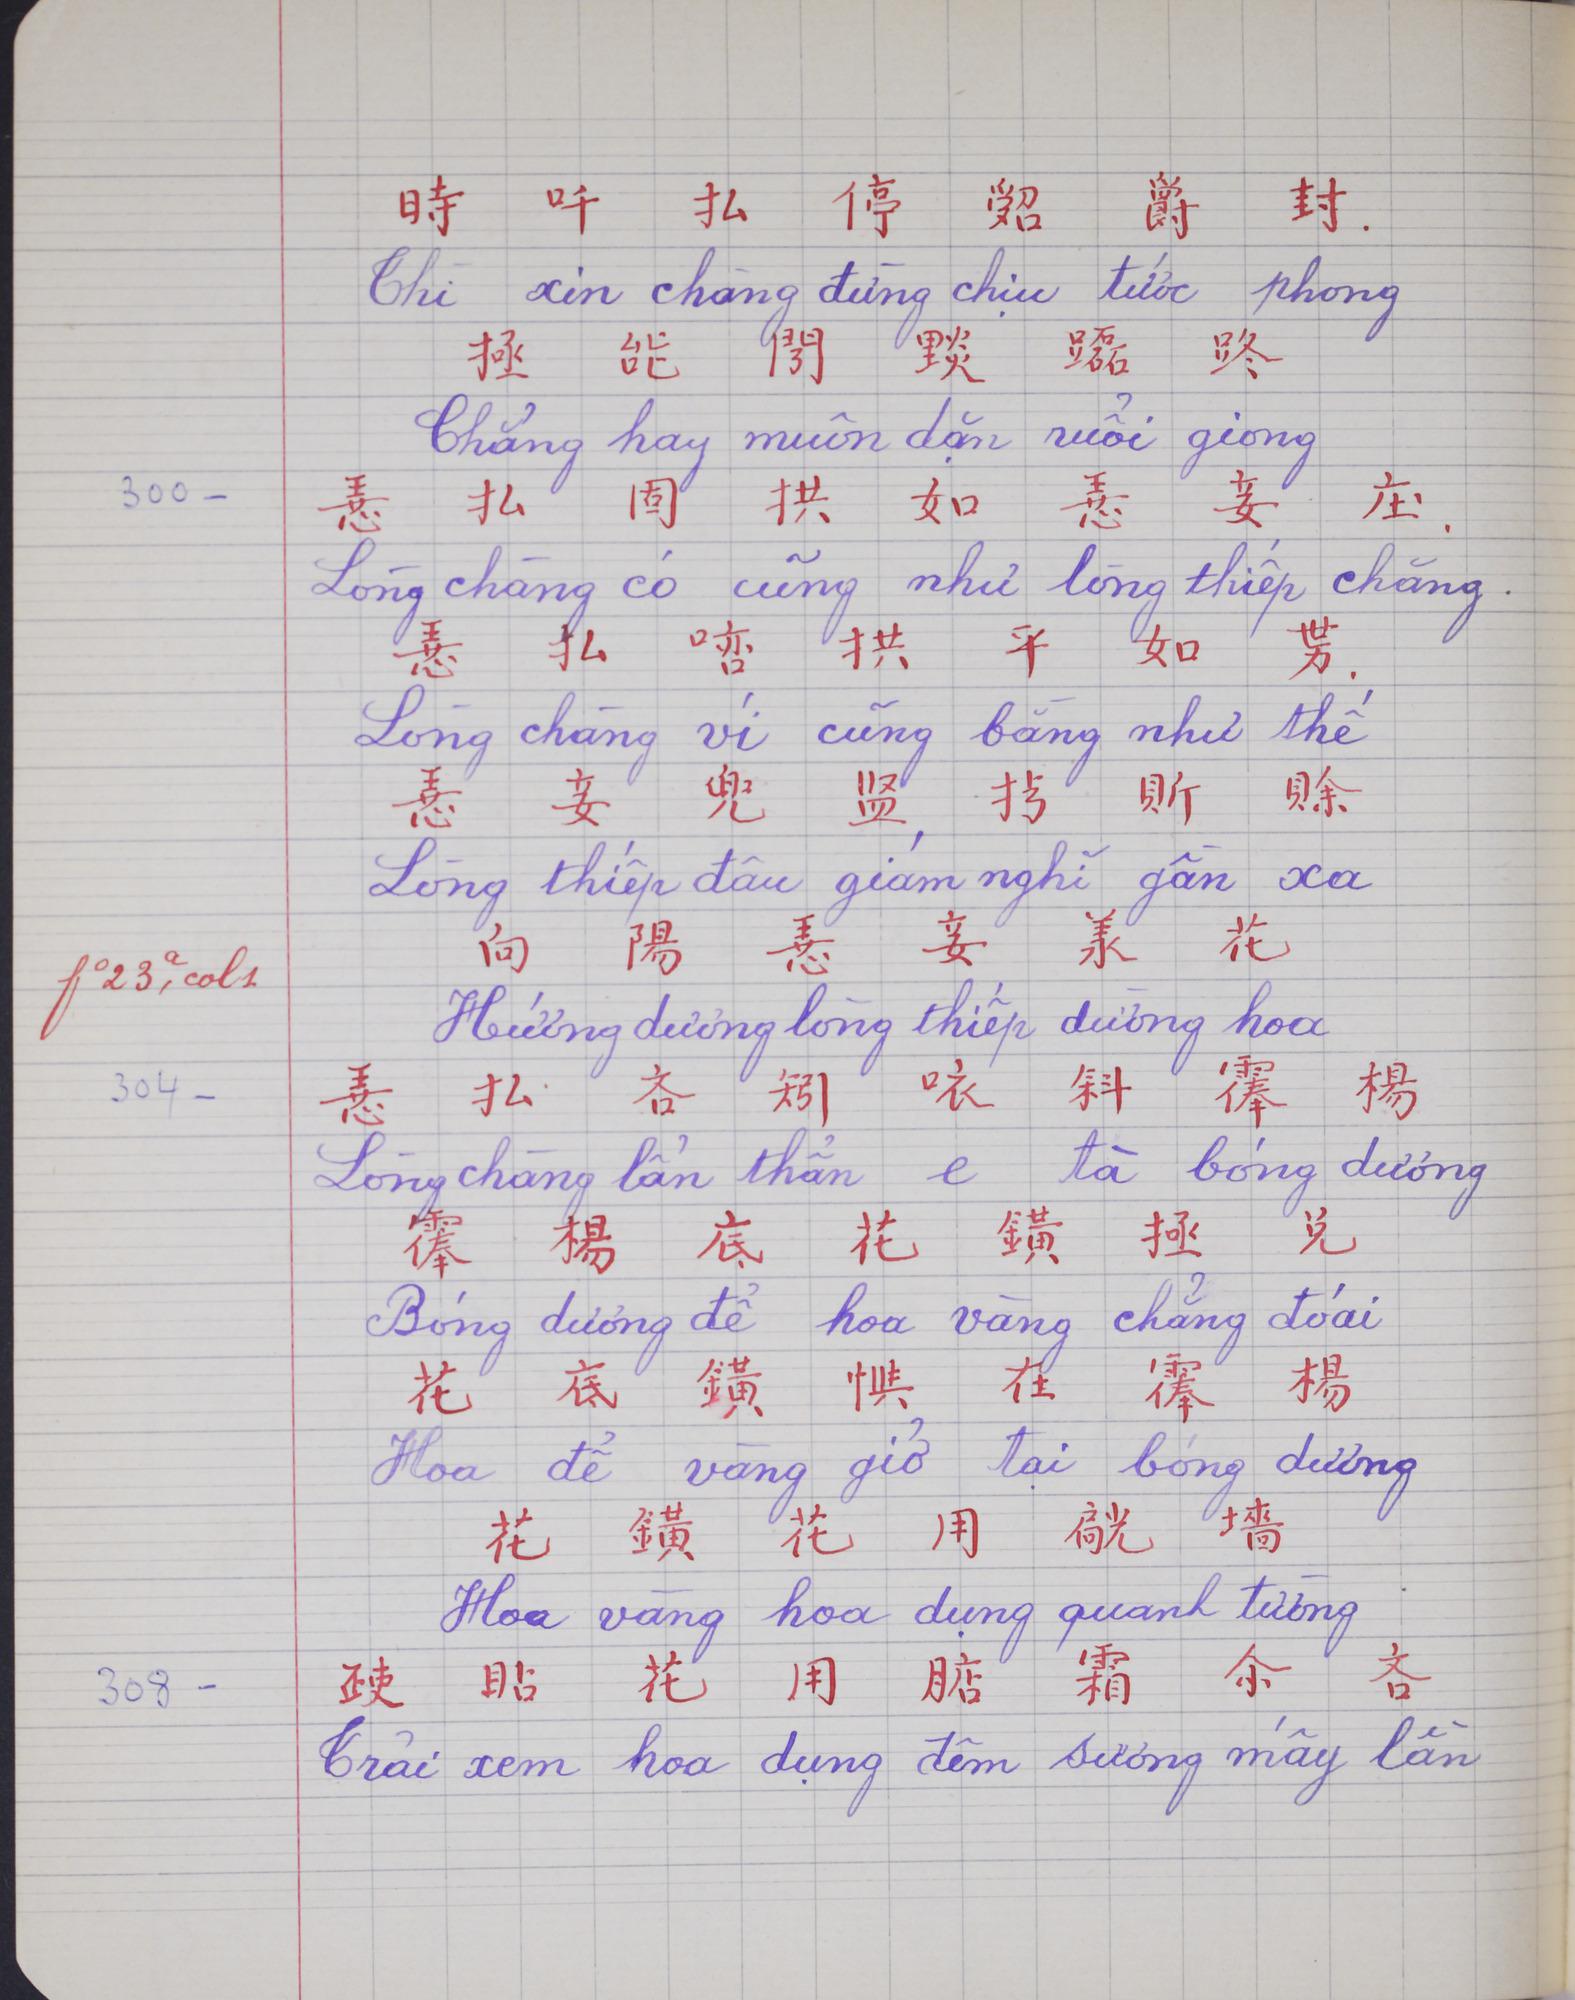 時 吀 払 停 𠹾 爵 封.
Thì xin chàng đừng chịu tước phong
拯 能 䦧 𤎔 𨀊 𨀐
Chẳng hay muôn dặn ruổi giong
300 – 𢚸 払 固 拱 如 𢚸 妾 庄.
Lòng chàng có cũng như lòng thiếp chăng.
𢚸 払 㗂 拱 平 如 𫢋.
Lòng chàng ví cũng bằng như thế
𢚸 妾 兜 監, 𢪀 𧵆 賒
Lòng thiếp đâu giám nghĩ gần xa
fº 23ª, col 1
向 陽 𢚸 妾 羕 花
Hướng dương lòng thiếp dường hoa
304 – 𢚸 払 吝 矧 㕆 斜 䨜 楊
Lòng chàng lẩn thẩn e tà bóng dương
䨜 楊 底 花 鐄 拯 兑
Bóng dương để hoa vàng chẳng đóai
花 底 鐄 惧 在 䨜 楊
Hoa để vàng giở tại bóng dương
花 鐄 花 用 𨒺 墻
Hoa vàng hoa dụng quanh tường
308 – 𣦰 貼 花 用 𣎀 霜 余 吝
Trải xem hoa dụng đêm sương mấy lần